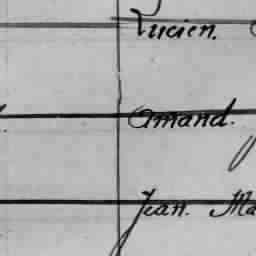 Lucien.
Amand.
Jean. Ma